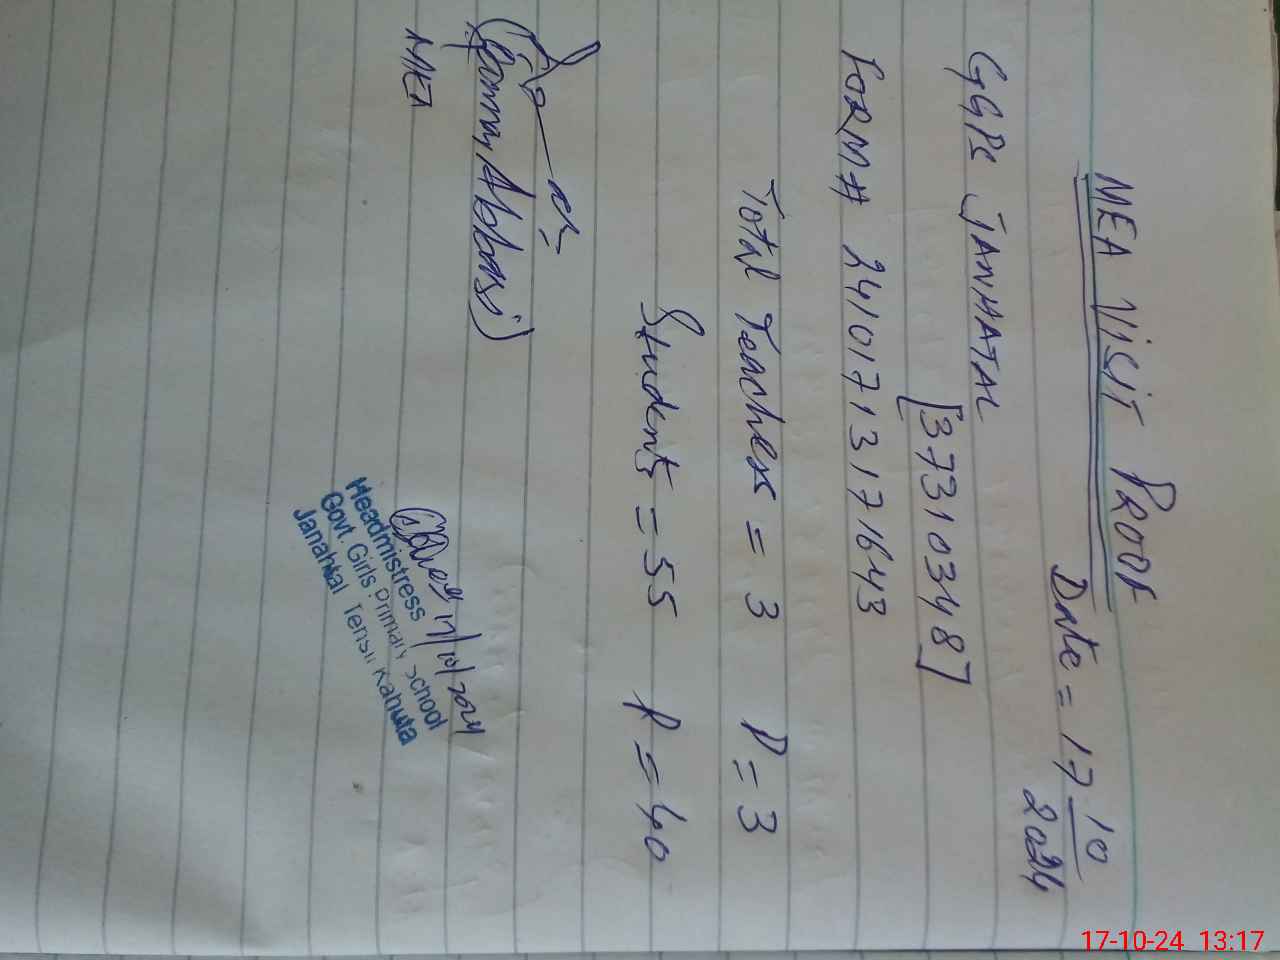 MEA VISIT PROOF
Date = 17 10/2024
GGPS JANHATAL
[37310348]
FORM# 24101713171643
Total Teachers = 3 P = 3
Students = 55 P = 40
Abbasi)
MEA
17/10/2024
Headmistress
Govt. Girls Primary School
Janahtal Tehsil Kahuta
17-10-24 13:17